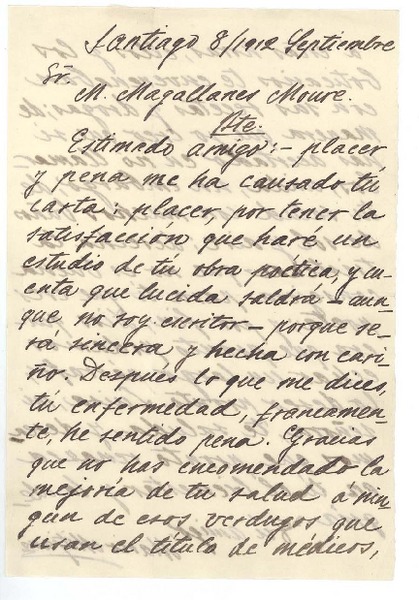 Santiago 8/1912 Septiembre
Sr.
M. Magallanes Moure.
Pte.
Estimado amigo:- placer
y pena me ha causado tú
carta; placer, por tener la
satisfacción que haré un
estudio de tú obra poética, y cu-
enta que lucida saldrá - aun-
que no soy escritor - porque se-
ra sincera y hecha con cari-
ño. Despues lo que me dices,
tú enfermedad, francamen-
te, he sentido pena. Gracias
que no has encomendado la
mejoría de tu salud á nin-
gun de esos verdugos que
usan el título de médicos,